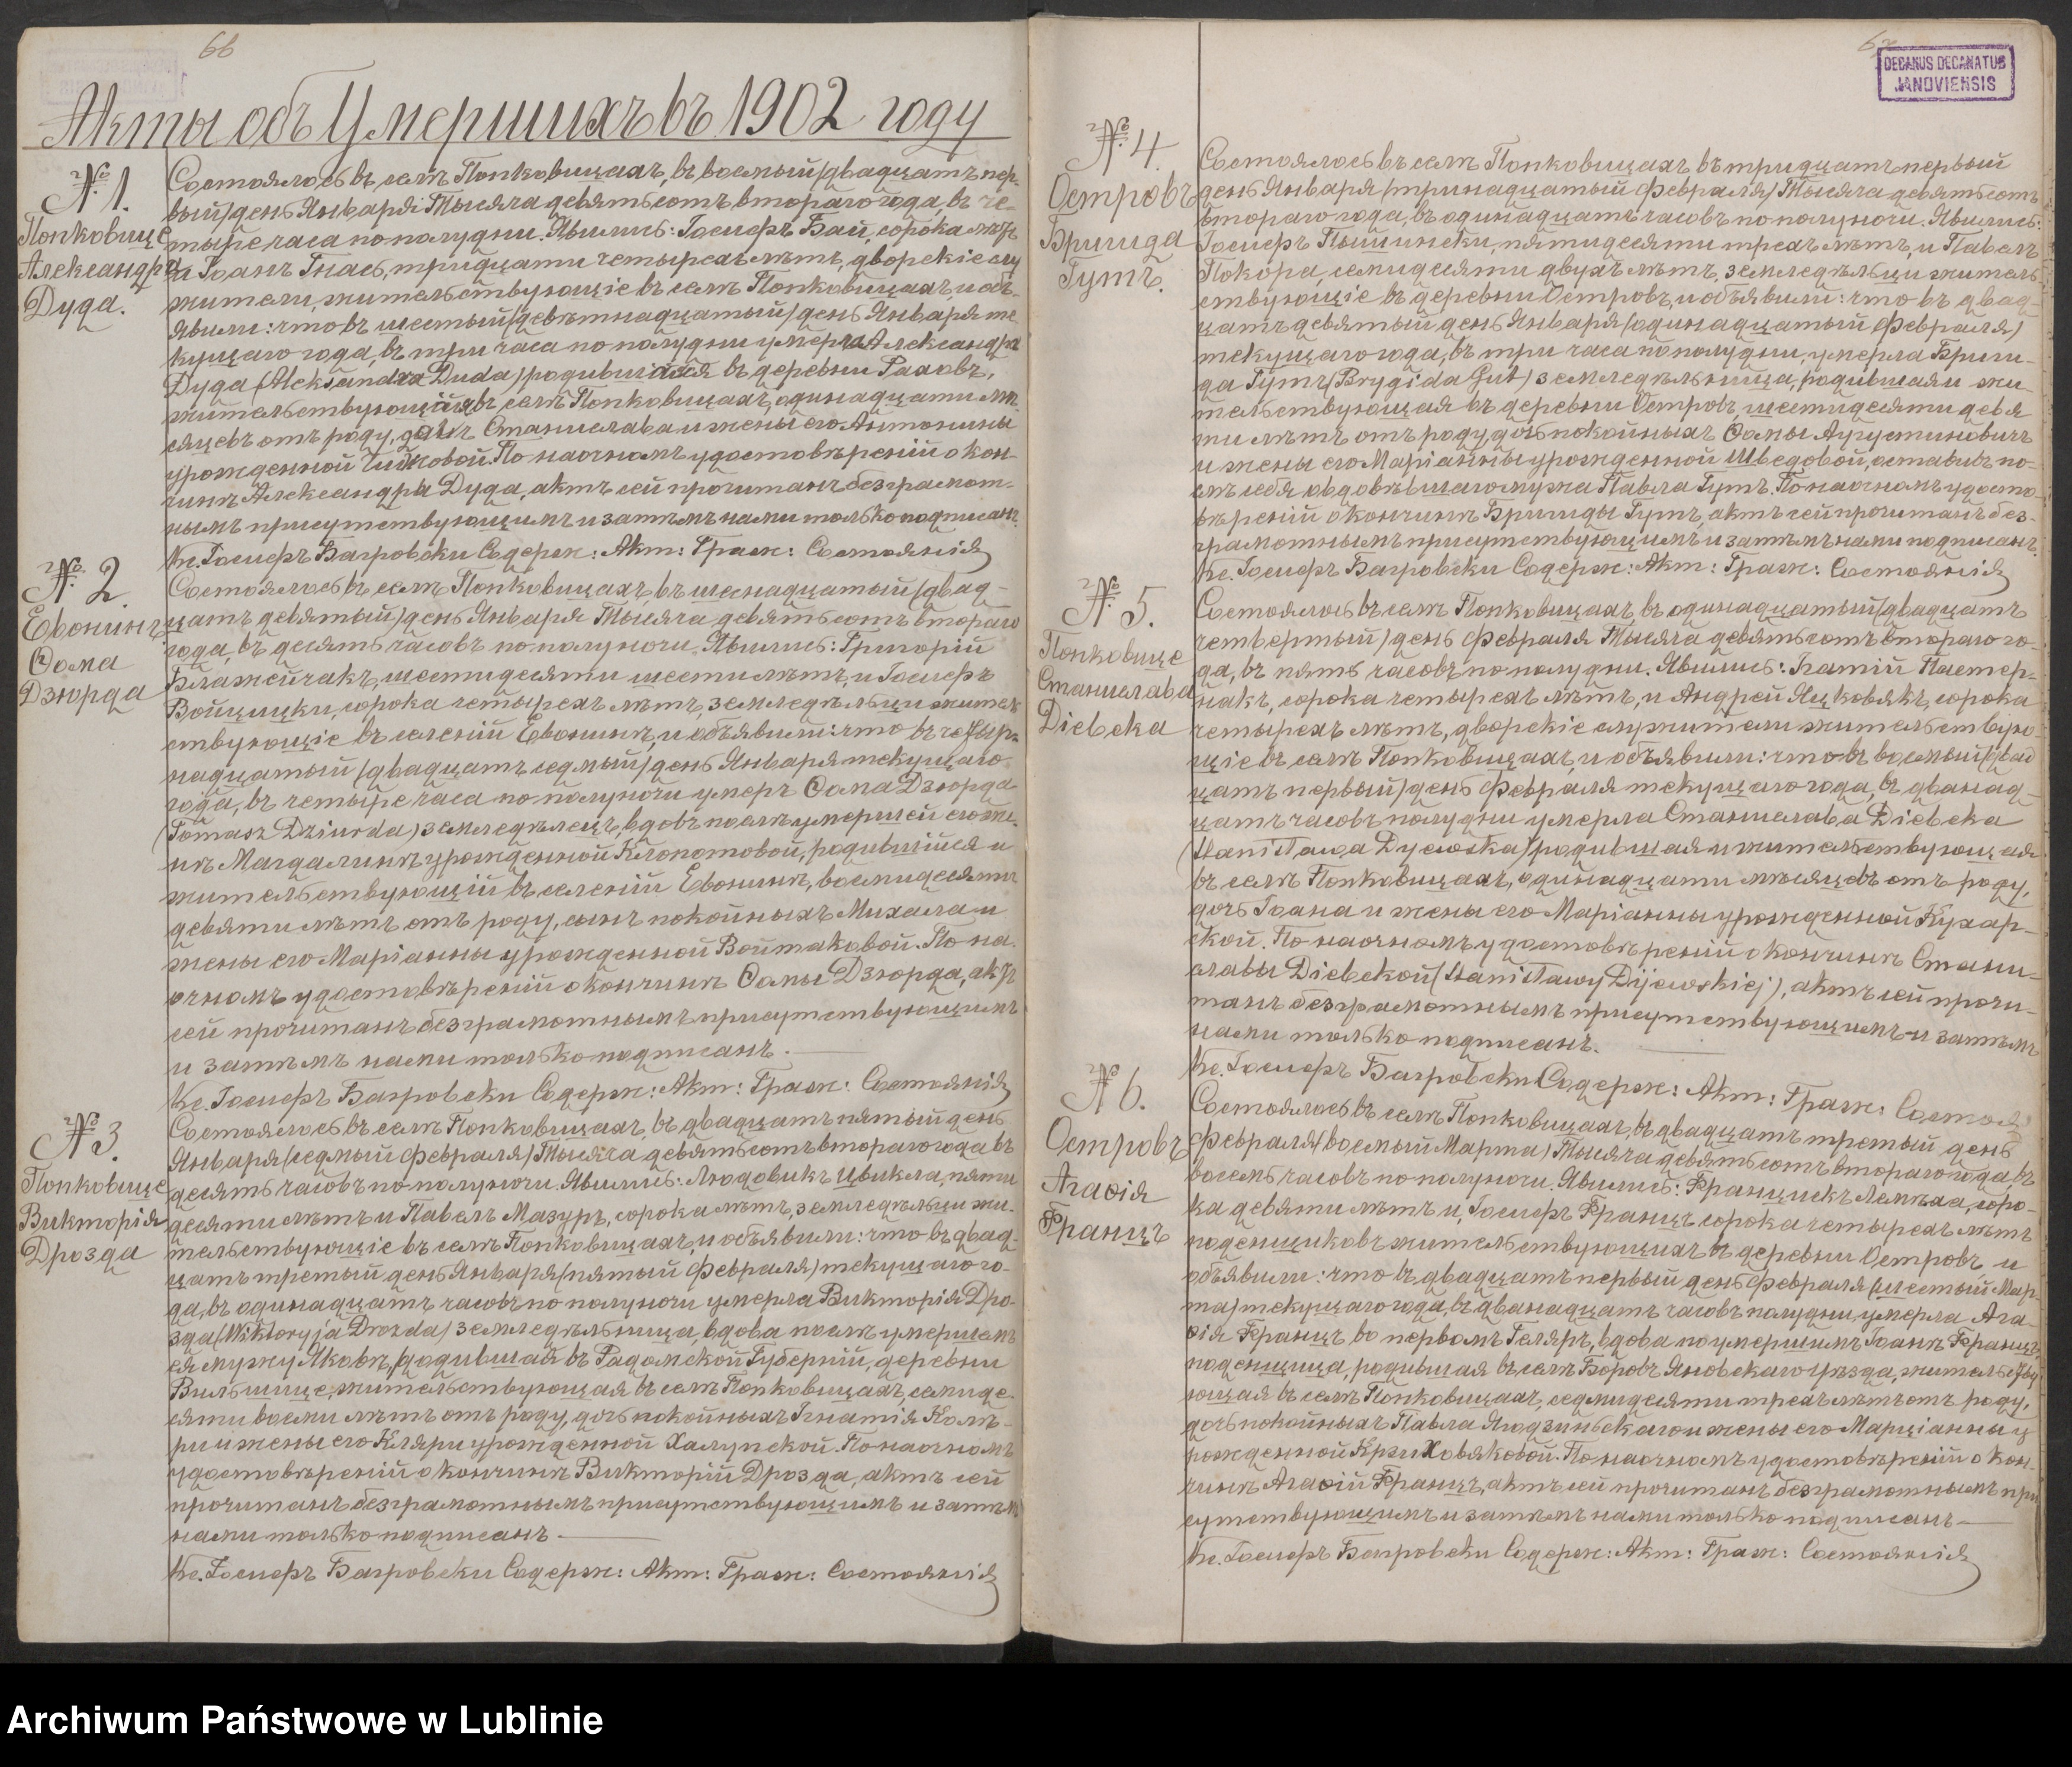 66
Акты объ Умершихъ въ 1902 году
№ 1.
Попковице
Александра
Дуда.
Состоялось въ селѣ Попковицахъ, въ восьмый/двадцать пер-
вый/день Января Тысяча девятьсотъ втораго года, въ че-
тыре часа по полудни. Явились: Іосифъ Бай, сорока лѣтъ
и Іоанъ Гнась, тридцати четырехъ лѣтъ, дворскіе слу
жители, жительствующіе въ селѣ Попковицахъ, и объ-
явили: что въ шестый/девятнадцатый/день Января те
кущаго года, въ три часа по полудни умерла Александра
Дуда (Aleksandra Duda) родившаяся въ деревни Раховъ,
жительствующая въ селѣ Попковицахъ, одинадцати мѣ-
сяцевъ отъ роду, дочь Станислава и жены его Антонины
урожденной Чижовой. По наочномъ удостовѣреніи о кон-
чинѣ Александры Дуда, актъ сей прочитанъ безграмот-
нымъ присутствующимъ и затѣмъ нами только подписанъ.
Кс. Іосифъ Багровски Содерж: Акт: Граж: Состоянія
№ 2.
Евонинъ
Ѳома
Дзюрда
Состоялось въ селѣ Попковицахъ, въ шеснадцатый/двад-
цать девятый/день Января Тысяча девятьсотъ втораго
года, въ десять часовъ по полуночи. Явились: Григорій
Блажейчакъ, шестидесяти шести лѣтъ, и Іосифъ
Войцицки, сорока четырехъ лѣтъ, земледѣльцы житель
ствующіе въ селеніи Евонинѣ, и объявили: что въ четыр-
надцатый/двадцать седмый/день Января текущаго
года, въ четыре часа по полуночи умеръ Ѳома Дзюрда
(Tomasz Dziurda) земледѣлецъ, вдовъ по слѣ умершей его же-
нѣ Магдалинѣ урожденной Клопотовой, родившійся и
жительствующій въ селеніи Евонинѣ, восмидесяти
девяти лѣтъ отъ роду, сынъ покойныхъ Михала и
жены его Маріанны урожденной Войтаковой. По на-
очномъ удостовѣреніи о кончинѣ Ѳомы Дзюрда, актъ
сей прочитанъ безграмотнымъ присутствующимъ
и затѣмъ нами только подписанъ.
Кс. Іосифъ Багровски Содерж: Акт: Граж: Состоянія
№ 3.
Попковице
Викторія
Дрозда
Состоялось въ селѣ Попковицахъ, въ двадцать пятый день
Января/седмый Февраля/Тысяча девятьсотъ втораго года въ
десять часовъ по полуночи. Явились: Людовикъ Цвикла, пяти
десяти лѣтъ и Павелъ Мазуръ, сорока лѣтъ, земледѣльцы жи-
тельствующіе въ селѣ Попковицахъ, и объявили: что въ двад-
цать третый день Января/пятый Февраля/текущаго го-
да, въ одинадцать часовъ по полуночи умерла Викторія Дро-
зда (Wiktoryja Drozda) земледѣльница, вдова по слѣ умершемъ
ея мужу Яковѣ, родившая въ Радомской Губерніи, деревни
Вильшице, жительствующая въ селѣ Попковицахъ, семиде-
сяти восми лѣтъ отъ роду, дочь покойныхъ Игнатія Колѣ-
ри и жены его Кляри урожденной Халупской. По наочномъ
удостовѣреніи о кончинѣ Викторіи Дрозда, актъ сей
прочитанъ безграмотнымъ присутствующимъ и затѣмъ
нами только подписанъ.
Кс. Іосифъ Багровски Содерж: Акт: Граж: Состоянія
67
DECANUS DECANATUS
JANOVIENSIS
№ 4.
Островъ
Бригида
Гутъ.
Состоялось въ селѣ Попковицахъ, въ тридцать первый
день Января/тринадцатый Февраля/Тысяча девятьсотъ
втораго года, въ одинадцать часовъ по полуночи. Явились:
Іосифъ Пышински, пятидесяти трехъ лѣтъ, и Павелъ
Покора, семидесяти двухъ лѣтъ, земледѣльцы житель
ствующіе въ деревни Островъ, и объявили: что въ двад-
цать девятый день Января/одинадцатый Февраля/
текущаго года, въ три часа по полудни, умерла Бриги-
да Гутъ (Brygida Gut) земледѣльница, родившая и жи-
тельствующая въ деревни Островъ, шестидесяти девя
ти лѣтъ отъ роду, дочь покойныхъ Ѳомы Аугустиновичъ
и жены его Маріанны урожденной Шведовой, оставивъ по-
слѣ себя овдовѣвшаго мужа Павла Гутъ. По наочномъ удосто-
вѣреніи о кончинѣ Бригиды Гутъ, актъ сей прочитанъ без-
грамотнымъ присутствующимъ и затѣмъ нами подписанъ.
Кс. Іосифъ Багровски Содерж: Акт: Граж: Состоянія
№ 5.
Попковице
Станислава
Діевска
Состоялось въ селѣ Попковицахъ, въ одинадцатый/двадцать
четвертый/день Февраля Тысяча девятьсотъ втораго го-
да, въ пять часовъ по полудни. Явились: Игатій Пастер-
накъ, сорока четырехъ лѣтъ, и Андрей Яцковякъ, сорока
четырехъ лѣтъ, дворскіе служители жительствую-
щіе въ селѣ Попковицахъ, и объявили: что въ восьмый/двад
цать первый/день Февраля текущаго года, въ двѣнад-
цать часовъ полудни умерла Станислава Діевска
(Stanisława Dyewska) родившая и жительствующая
въ селѣ Попковицахъ, одинадцати мѣсяцевъ отъ роду,
дочь Іоана и жены его Маріанны урожденной Кухар-
ской. По наочномъ удостовѣреніи о кончинѣ Стани-
славы Діевской (Stanisławy Dijewskiej), актъ сей прочи-
танъ безграмотнымъ присутствующимъ и затѣмъ
нами только подписанъ.
Кс. Іосифъ Багровски Содерж: Акт: Граж: Состоя
№ 6.
Островъ
Агаѳія
Францъ
Состоялось въ селѣ Попковицахъ, въ двадцать третый день
Февраля/восьмый Марта/Тысяча девятьсотъ втораго года, въ
восемь часовъ по полуночи. Явились: Францискъ Лемѣха, соро-
ка девяти лѣтъ и, Іосифъ Францъ сорока четырехъ лѣтъ
поденщиковъ жительствующихъ въ деревни Островъ и
объявили: что въ двадцать первый день Февраля/шестый Мар-
та/текущаго года, въ двѣнадцать часовъ полудни, умерла Ага-
ѳія Францъ во первомъ Геляръ, вдова по умершимъ Іоанѣ Францъ,
поденщица, родившая въ селѣ Боровъ Яновскаго Уѣзда, жительству
ющая въ селѣ Попковицахъ, седмидесяти трехъ лѣтъ отъ роду,
дочь покойныхъ Павла Ягодзинскаго и жены его Марціанны у
рожденной Кржиховяковой. По наочномъ удостовѣреніи о кон-
чинѣ Агаѳіи Францъ, актъ сей прочитанъ безграмотнымъ при
сутствующимъ и затѣмъ нами только подписанъ
Кс. Іосифъ Багровски Содерж: Акт: Граж: Состоянія
Archiwum Państwowe w Lublinie